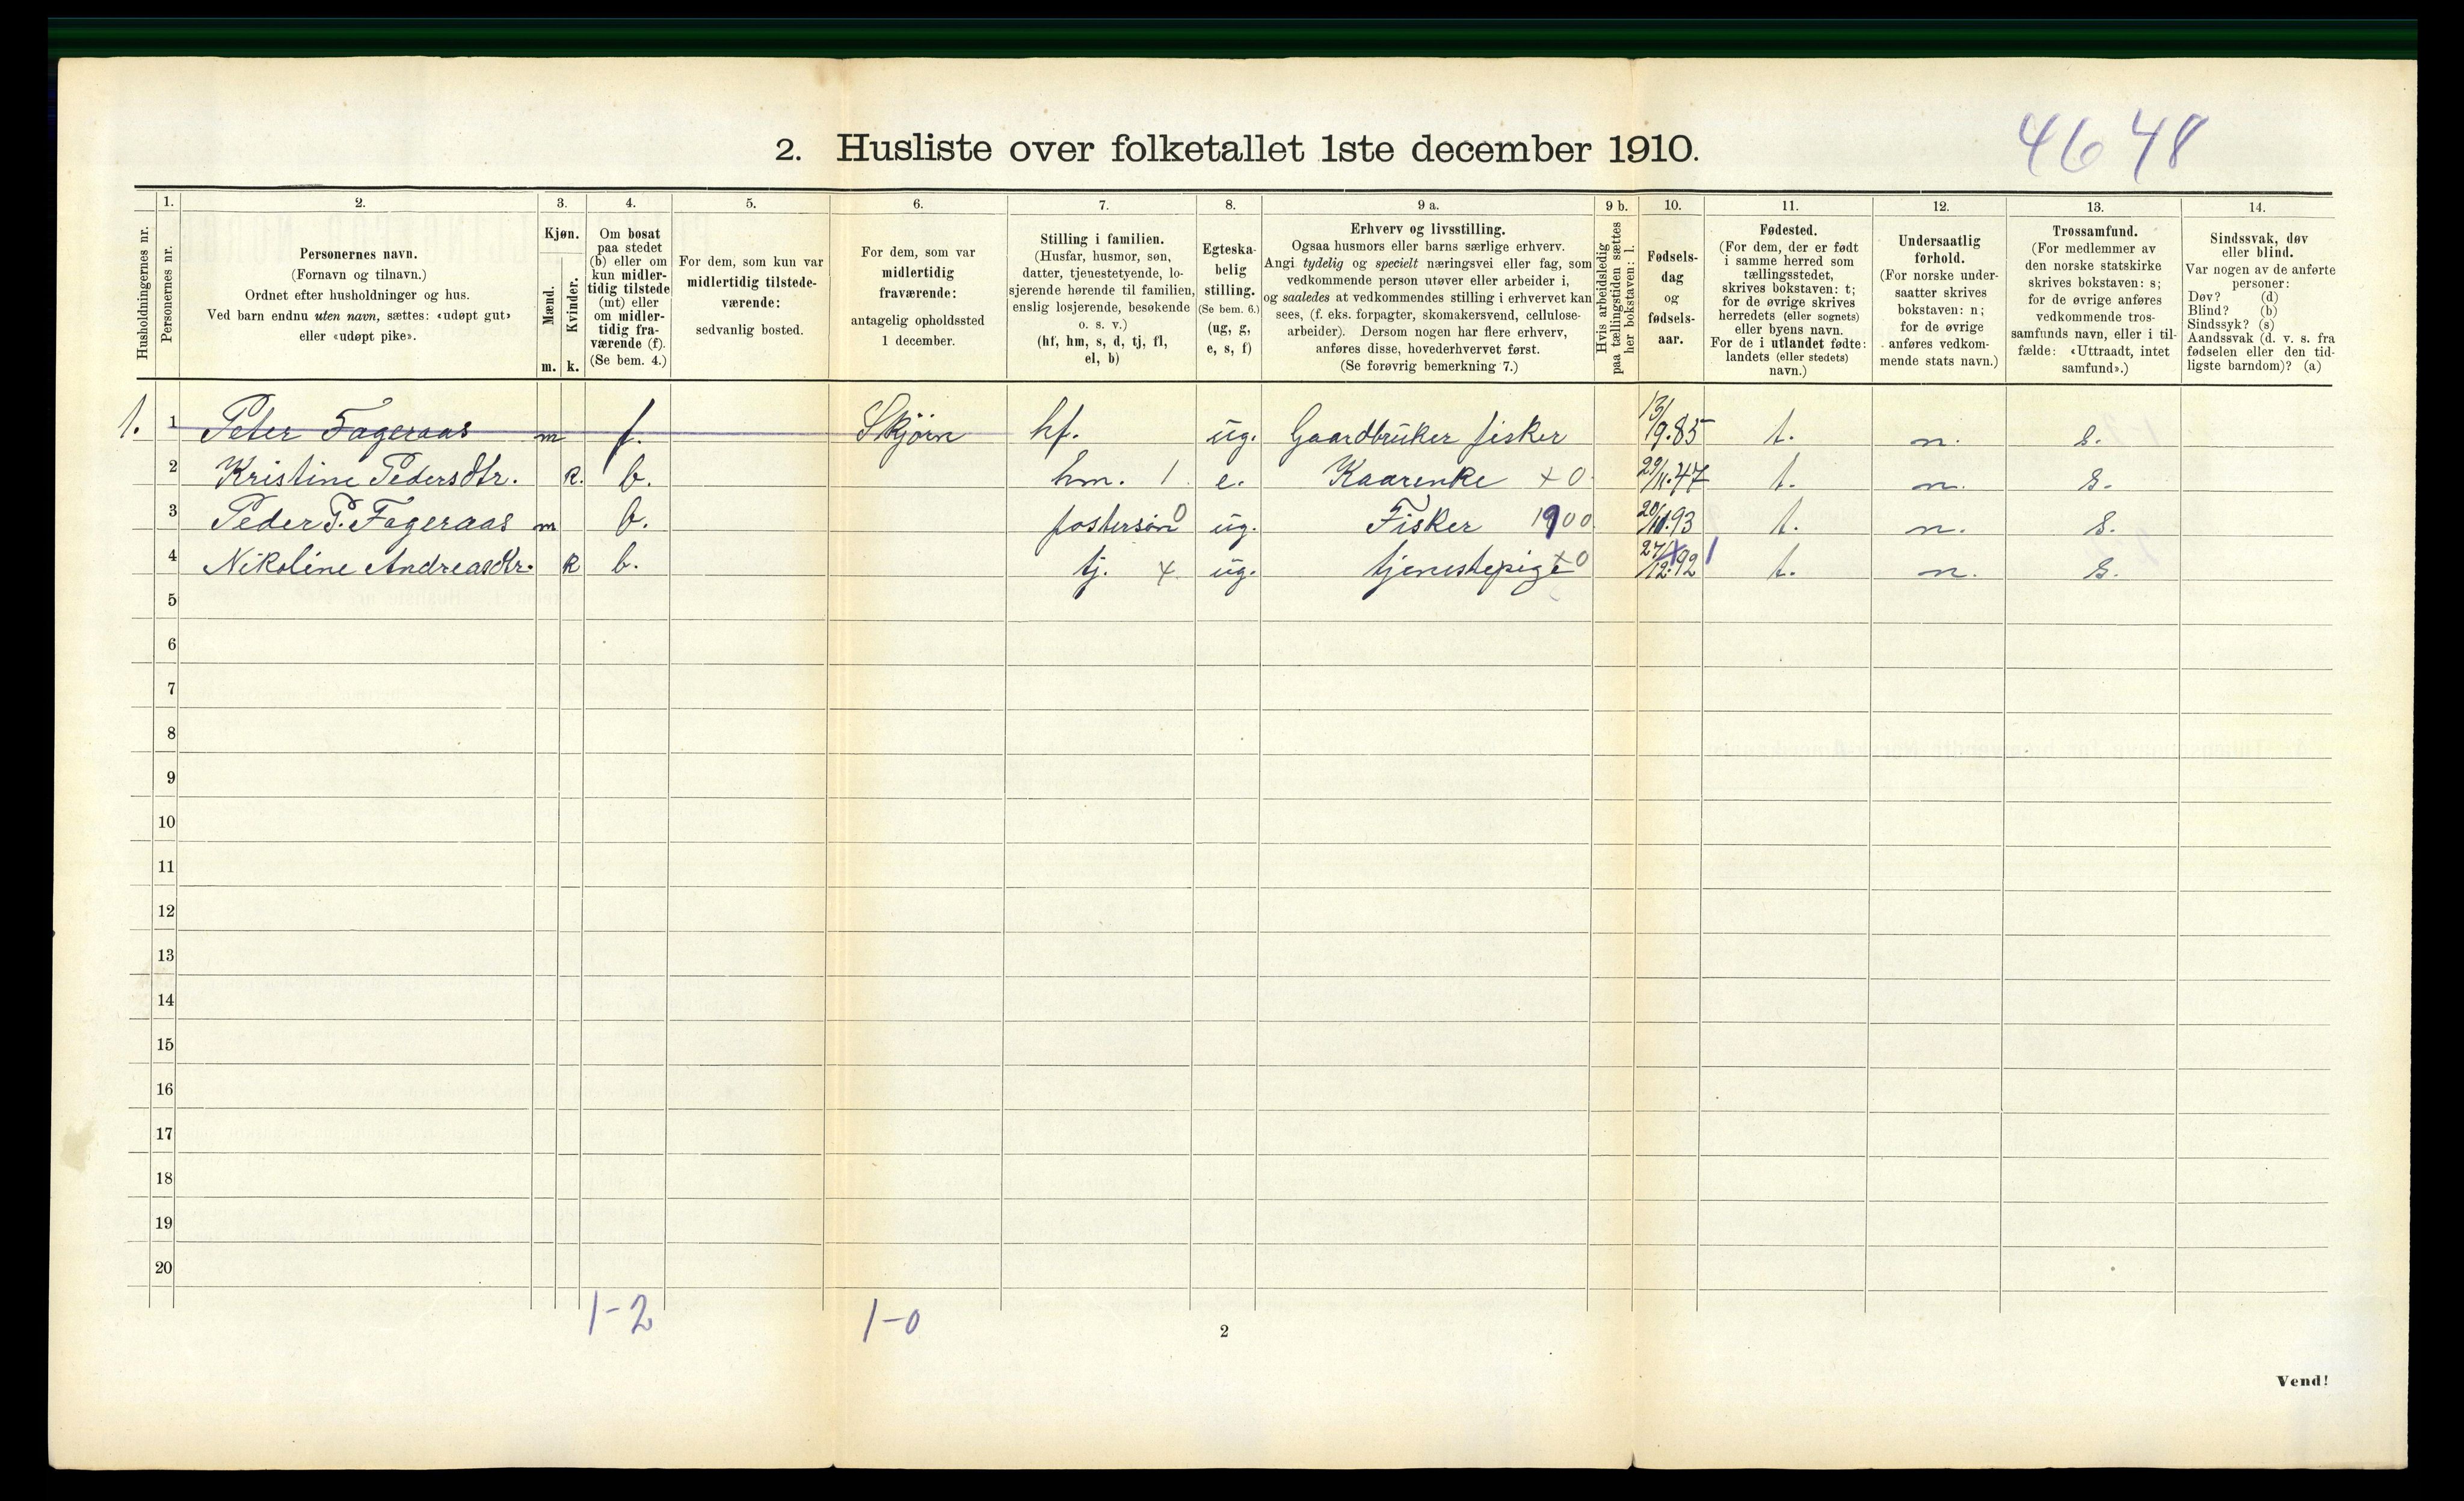 4648
2. Husliste over folketallet 1ste december 1910.
Husholdningernes nr.
1.
Personernes nr.
2.
Personernes navn.
(Fornavn og tilnavn.)
Ordnet efter husholdninger og hus.
Ved barn endnu uten navn, sættes: «udøpt gut»
eller «udøpt pike».
3.
Kjøn.
Mænd.
Kvinder.
m. k.
4.
Om bosat
paa stedet
(b) eller om
kun midler-
tidig tilstede
(mt) eller
om midler-
tidig fra-
værende (f).
(Se bem. 4.)
5.
For dem, som kun var
midlertidig tilstede-
værende:
sedvanlig bosted.
6.
For dem, som var
midlertidig
fraværende:
antagelig opholdssted
1 december.
7.
Stilling i familien.
(Husfar, husmor, søn,
datter, tjenestetyende, lo-
sjerende hørende til familien,
enslig losjerende, besøkende
o. s. v.)
(hf, hm, s, d, tj, fl,
el, b)
8.
Egteska-
belig
stilling.
(Se bem. 6.)
(ug, g,
e, s, f)
9 a.
Erhverv og livsstilling.
Ogsaa husmors eller barns særlige erhverv.
Angi tydelig og specielt næringsvei eller fag, som
vedkommende person utøver eller arbeider i,
og saaledes at vedkommendes stilling i erhvervet kan
sees, (f. eks. forpagter, skomakersvend, cellulose-
arbeider). Dersom nogen har flere erhverv,
anføres disse, hovederhvervet først.
(Se forøvrig bemerkning 7.)
9 b.
Hvis arbeidsledig
paa tællingstiden sættes
her bokstaven: l.
10.
Fødsels-
dag
og
fødsels-
aar.
11.
Fødested.
(For dem, der er født
i samme herred som
tællingsstedet,
skrives bokstaven: t;
for de øvrige skrives
herredets (eller sognets)
eller byens navn.
For de i utlandet fødte:
landets (eller stedets)
navn.)
12.
Undersaatlig
forhold.
(For norske under-
saatter skrives
bokstaven: n;
for de øvrige
anføres vedkom-
mende stats navn.)
13.
Trossamfund.
(For medlemmer av
den norske statskirke
skrives bokstaven: s;
for de øvrige anføres
vedkommende tros-
samfunds navn, eller i til-
fælde: «Uttraadt, intet
samfund».)
14.
Sindssvak, døv
eller blind.
Var nogen av de anførte
personer:
Døv? (d)
Blind? (b)
Sindssyk? (s)
Aandssvak (d. v. s. fra
fødselen eller den tid-
ligste barndom)? (a)
1. 1 Peter Fageraas m f. Skjørn hf. ug. Gaardbruker fisker 13/9.85 t. n. s.
2 Kristine Pedersdtr. k. b. hm. 1 e. Kaarenke +0 29/11.47 t. n. s.
3 Peder P. Fageraas m b. fostersøn 0 ug. Fisker 1900 t. n. s.
4 Nikoline Andreasdtr. k b. tj. x ug. tjenestepige +0 27/12.92 1 t. n. s.
5
6
7
8
9
10
11
12
13
14
15
16
17
18
19
20
1-2 1-0
2
Vend!